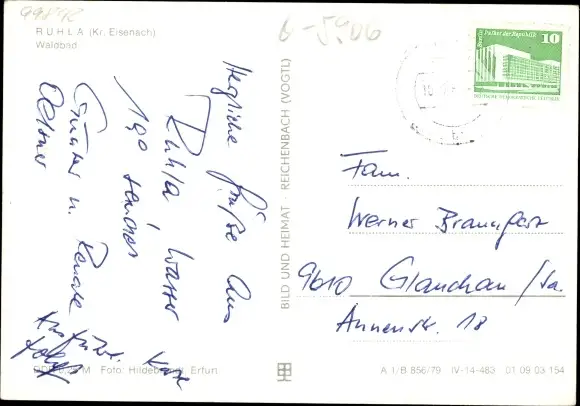 99842
6-5,406
RUHLA (Kr. Eisenach)
Waldbad
Herzliche Grüße aus
Ruhla, Wasser
19° 
Günter u. Renate
BILD UND HEIMAT · REICHENBACH (VOGTL)
Palast der Republik
10
DEUTSCHE DEMOKRATISCHE REPUBLIK
Fam.
Werner
9610 Glauchau/Sa.
Annenstr. 18
M Foto: Hildebrandt, Erfurt
A 1/B 856/79 IV-14-483 01 09 03 154